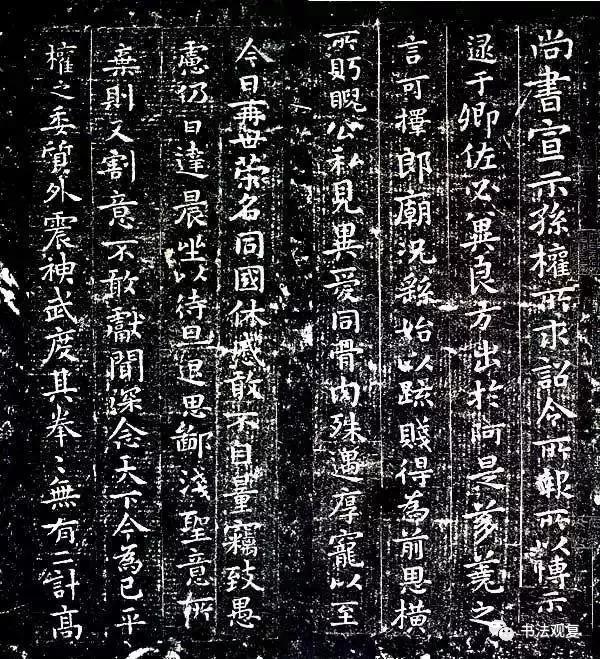 尚書宣示孫權所求詔令所報所以博示
逮于卿佐必冀良方出於阿是芻蕘之
言可擇郎廟況繇始以疏賤得為前恩橫
所盻睨公私見異愛同骨肉殊遇厚寵以至
今日再世榮名同國休慼敢不自量竊致愚
慮仍日達晨坐以待旦退思鄙淺聖意所
棄則又割意不敢獻聞深念天下今為已平
權之委質外震神武度其拳〻無有二計高
书法观复